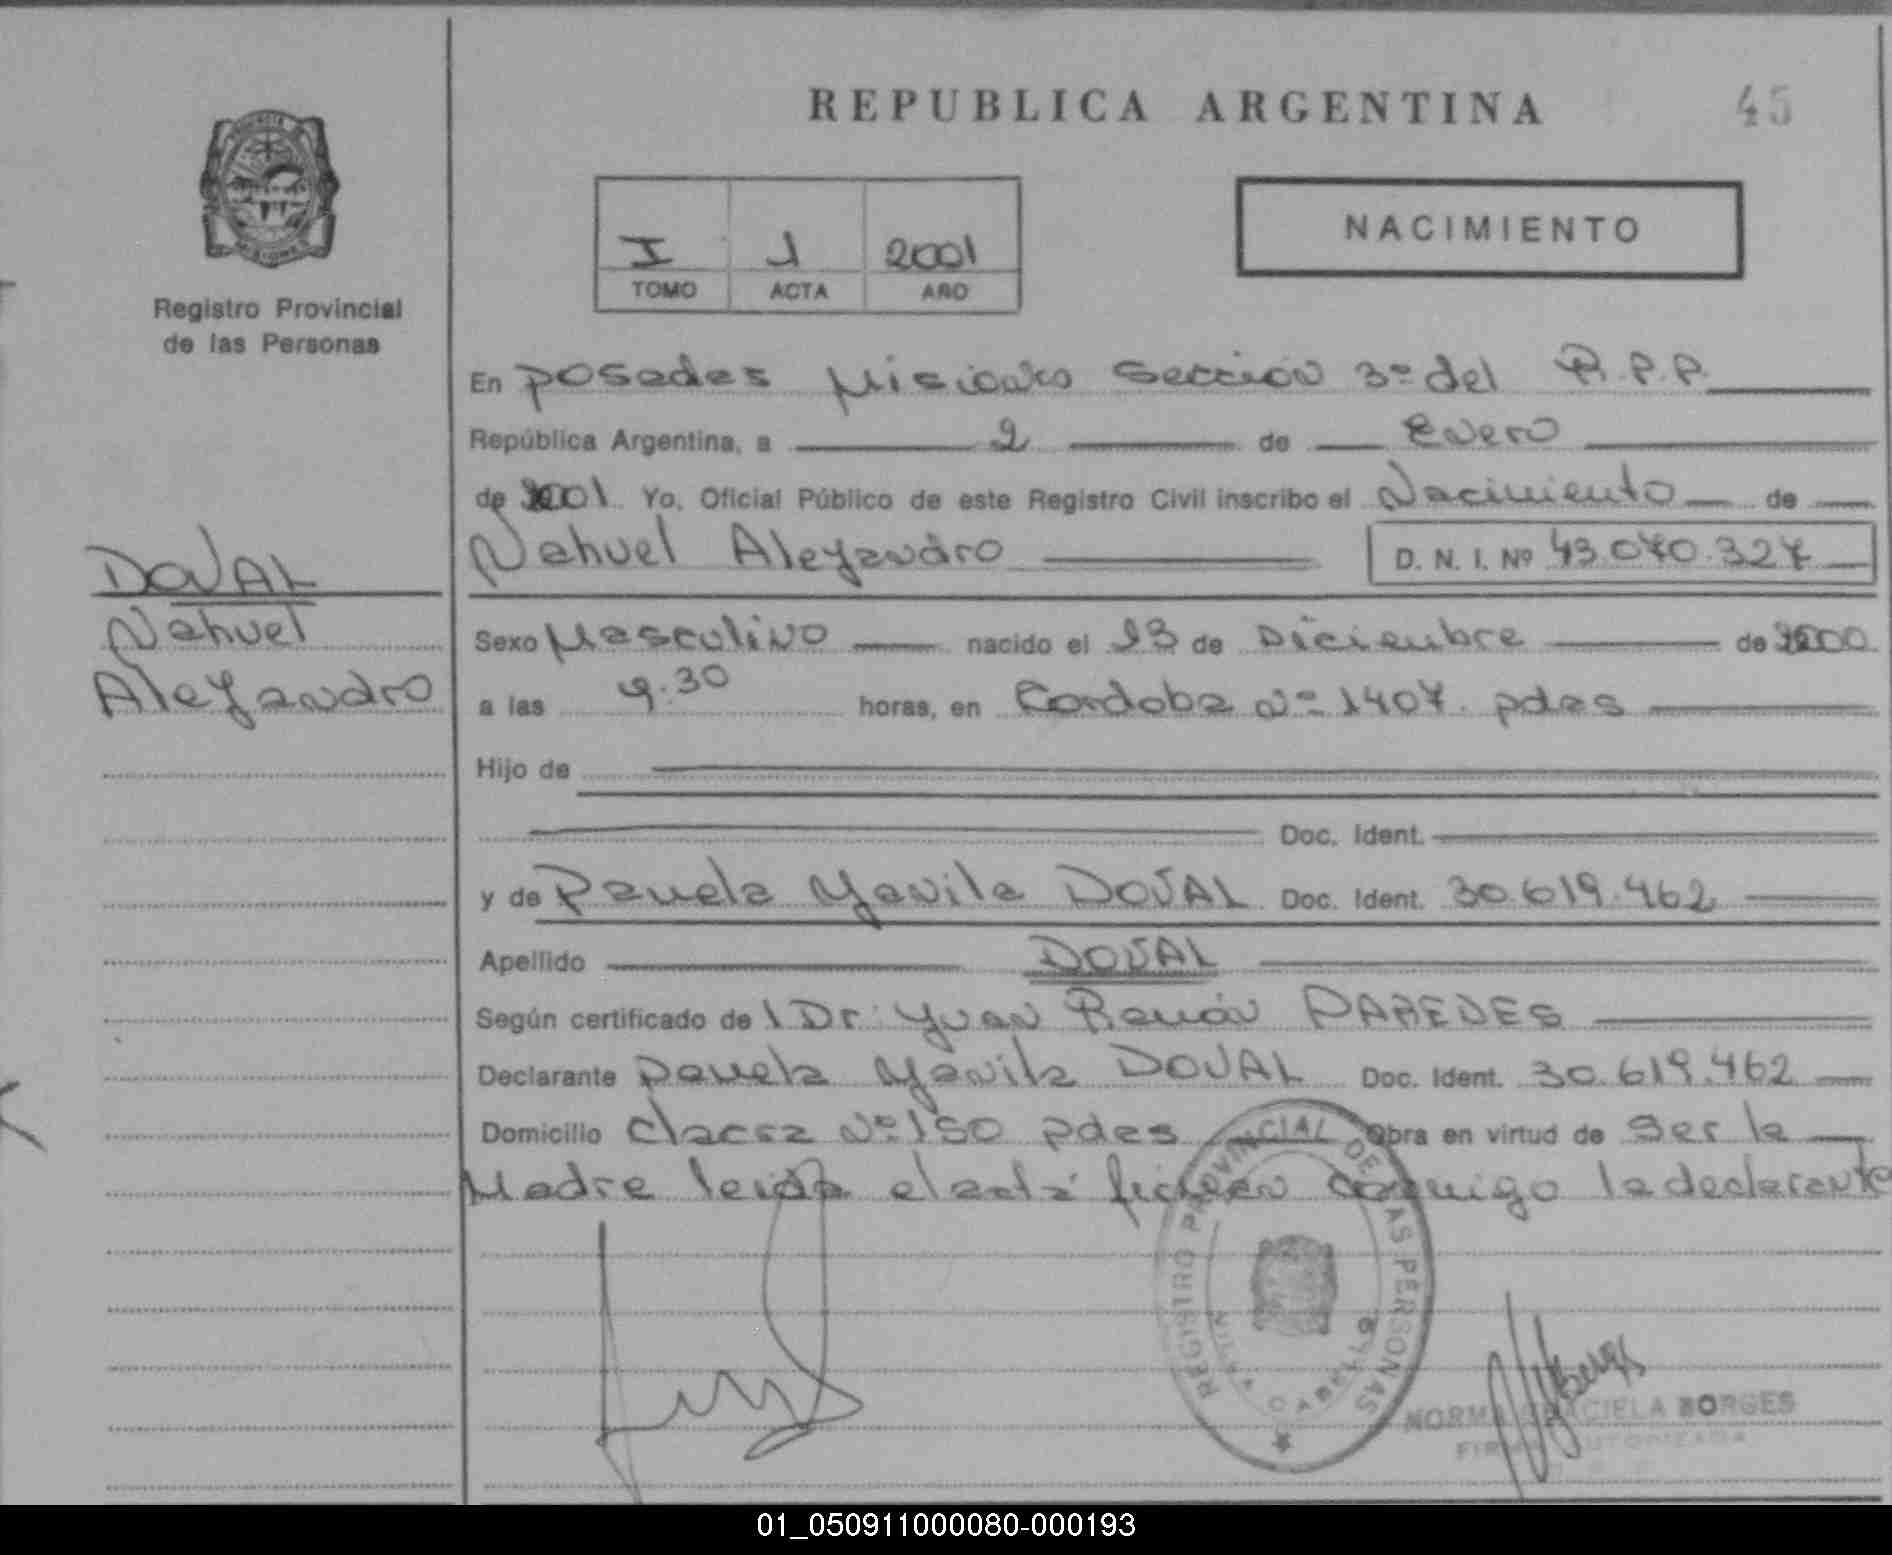 REPUBLICA ARGENTINA 45
I 1 2001
TOMO ACTA AÑO
NACIMIENTO
Registro Provincial
de las Personas
En Posadas Misiones Sección 3ª del R.P.P.
República Argentina, a 2 de Enero
de 2001 Yo, Oficial Público de este Registro Civil inscribo el Nacimiento de
Nahuel Alejandro D. N. I. Nº 43.070.327
DOVAL
Nahuel
Alejandro
Sexo Masculino nacido el 13 de Diciembre de 2000
a las 9.30 horas, en Cordoba Nº 1407. pdas
Hijo de
Doc. Ident.
y de Pamela Yanila DOVAL Doc. Ident. 30.619.462
Apellido DOVAL
Según certificado de l Dr. Juan Ramón PAREDES
Declarante Pamela Yanila DOVAL Doc. Ident. 30.619.462
Domicilio Nº 150 pdas Obra en virtud de Ser la
Madre leida el acta firman conmigo la declarante
REGISTRO PROVINCIAL DE LAS PERSONAS
NORMA GRACIELA BORGES
FIRMA AUTORIZADA
01_050911000080-000193